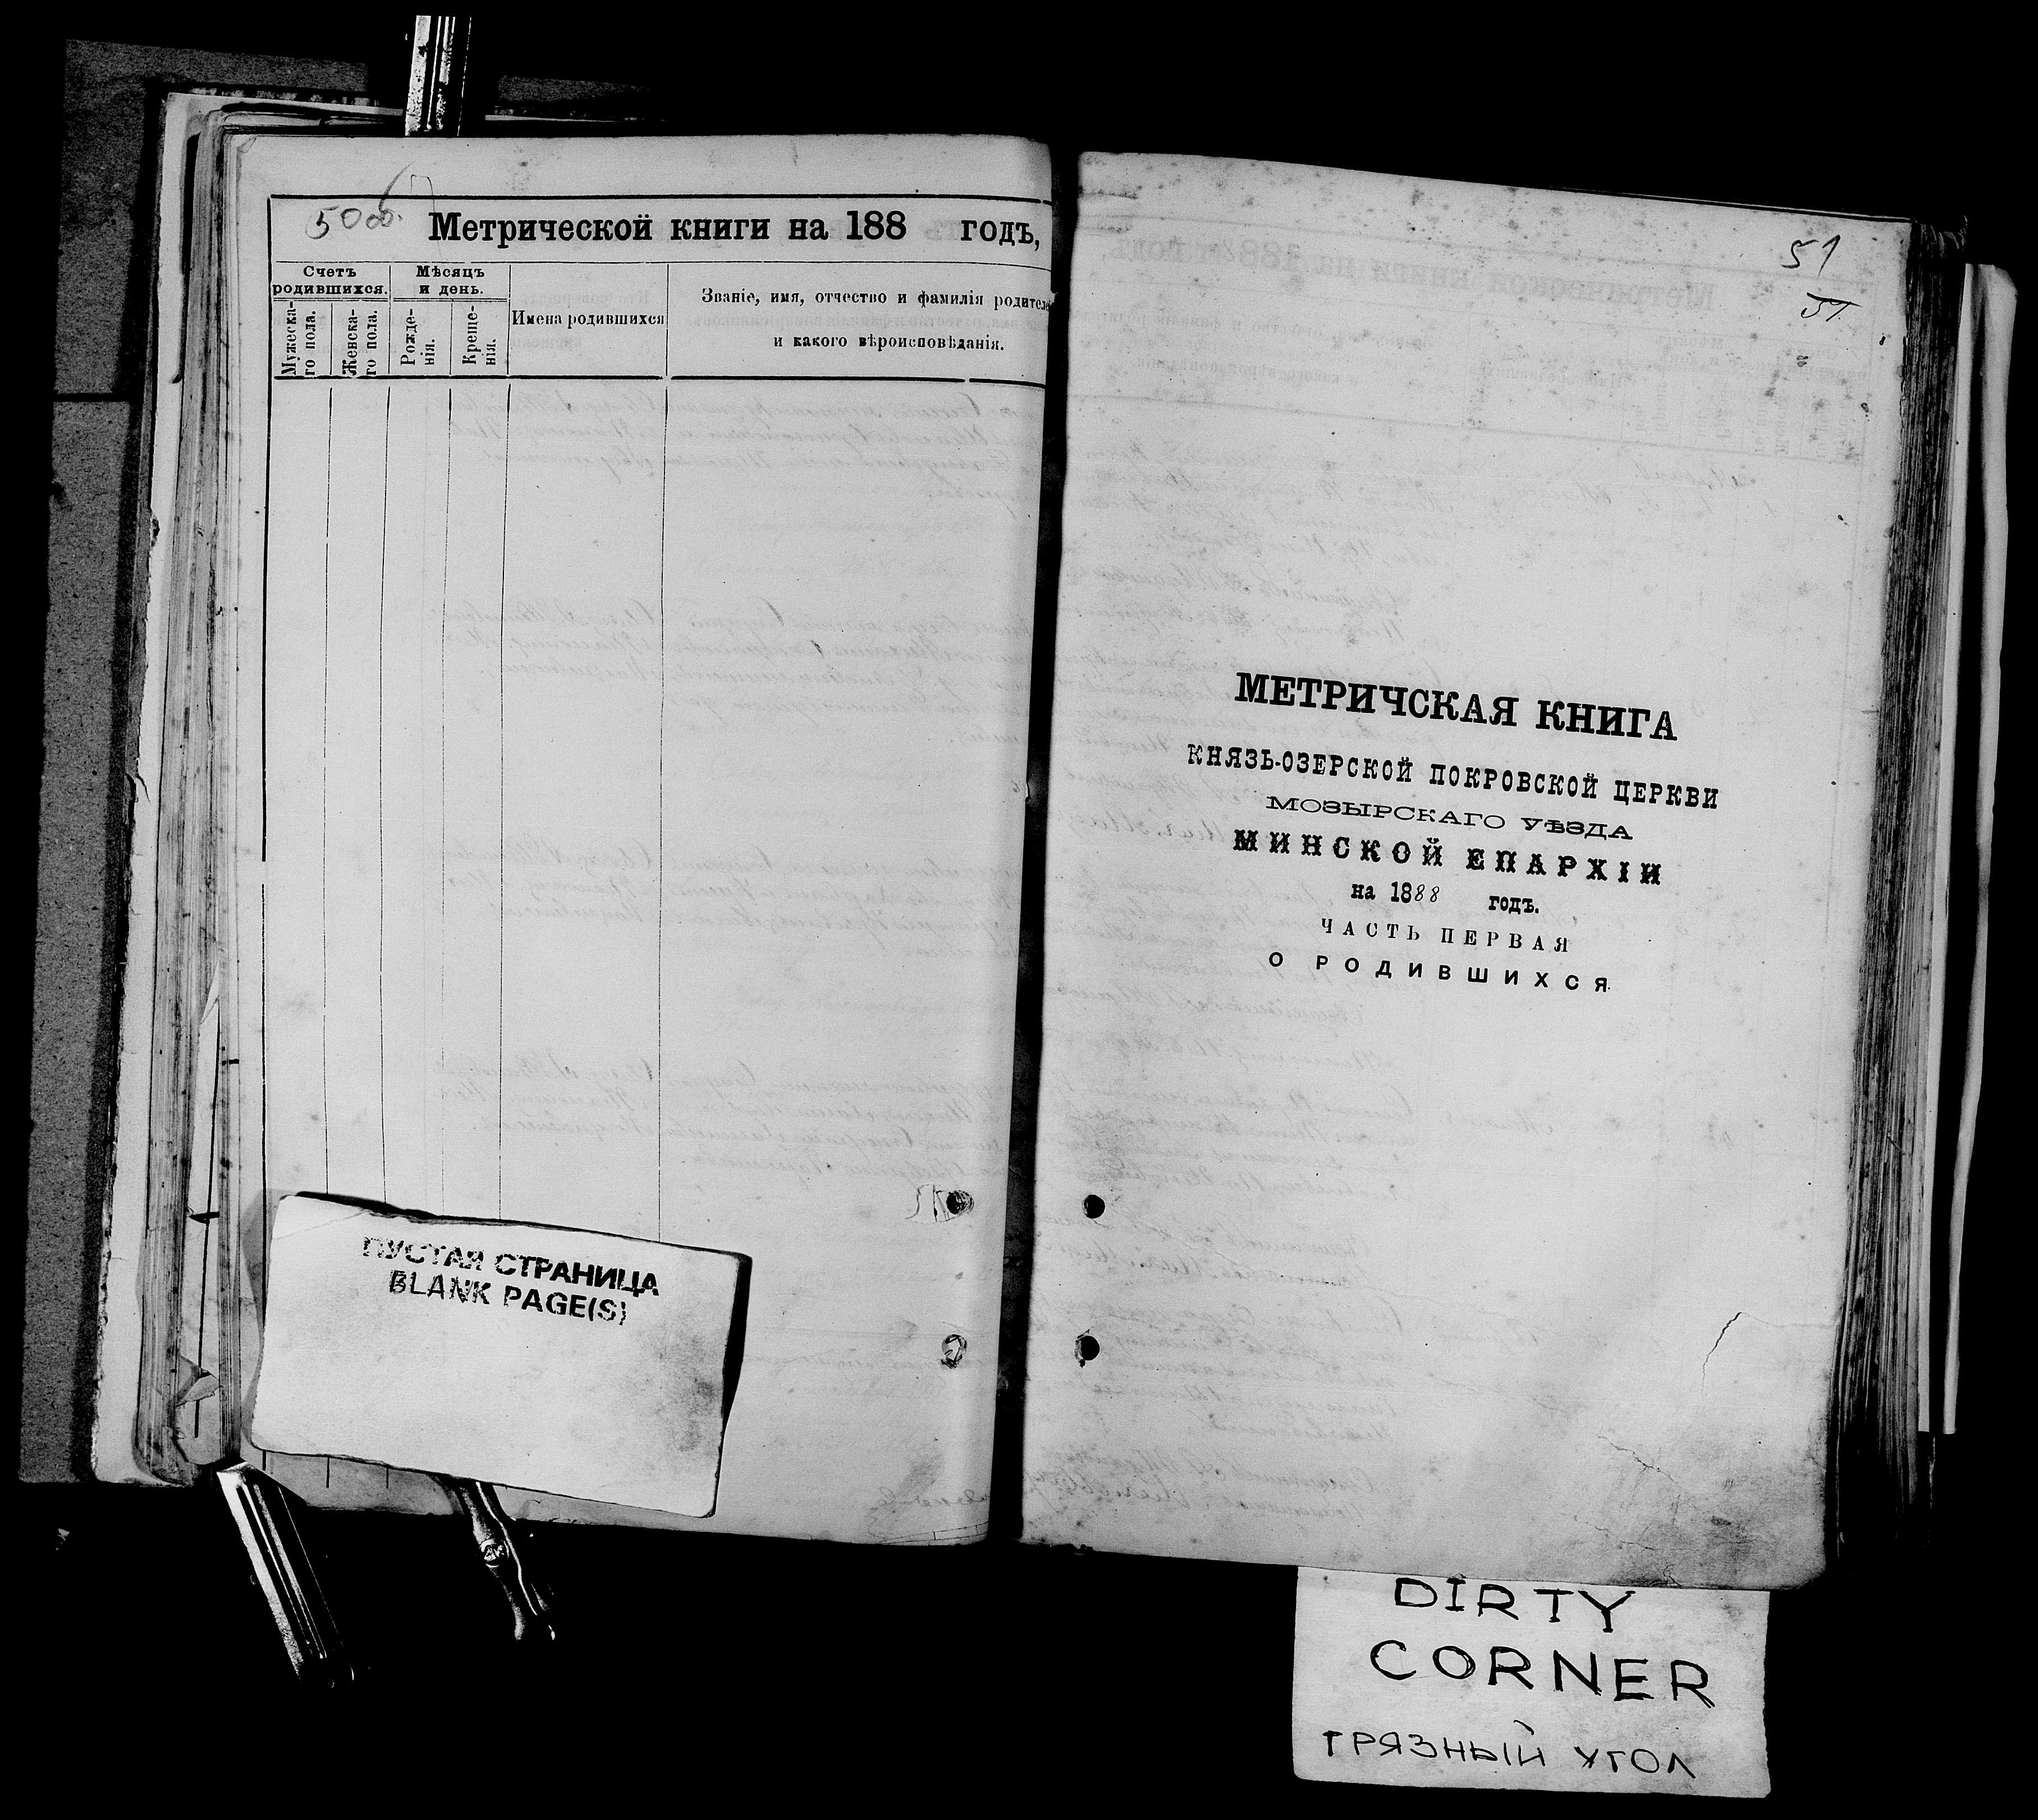 50 об.
Метрической книги на 188 годъ,
Счетъ родившихся.
Мѣсяцъ и день.
Мужеска-
го пола.
Женска-
го пола.
Рожде-
нія.
Креще-
нія.
Имена родившихся
Званіе, имя, отчество и фамилія родителе
и какого вѣроисповѣданія.
ПУСТАЯ СТРАНИЦА
BLANK PAGE(S)
51
51
МЕТРИЧСКАЯ КНИГА
КНЯЗЬ-ОЗЕРСКОЙ ПОКРОВСКОЙ ЦЕРКВИ
МОЗЫРСКАГО УѢЗДА
МИНСКОЙ ЕПАРХІИ
на 1888 годъ.
ЧАСТЬ ПЕРВАЯ
О РОДИВШИХСЯ
DIRTY
CORNER
ГРЯЗНЫЙ УГОЛ